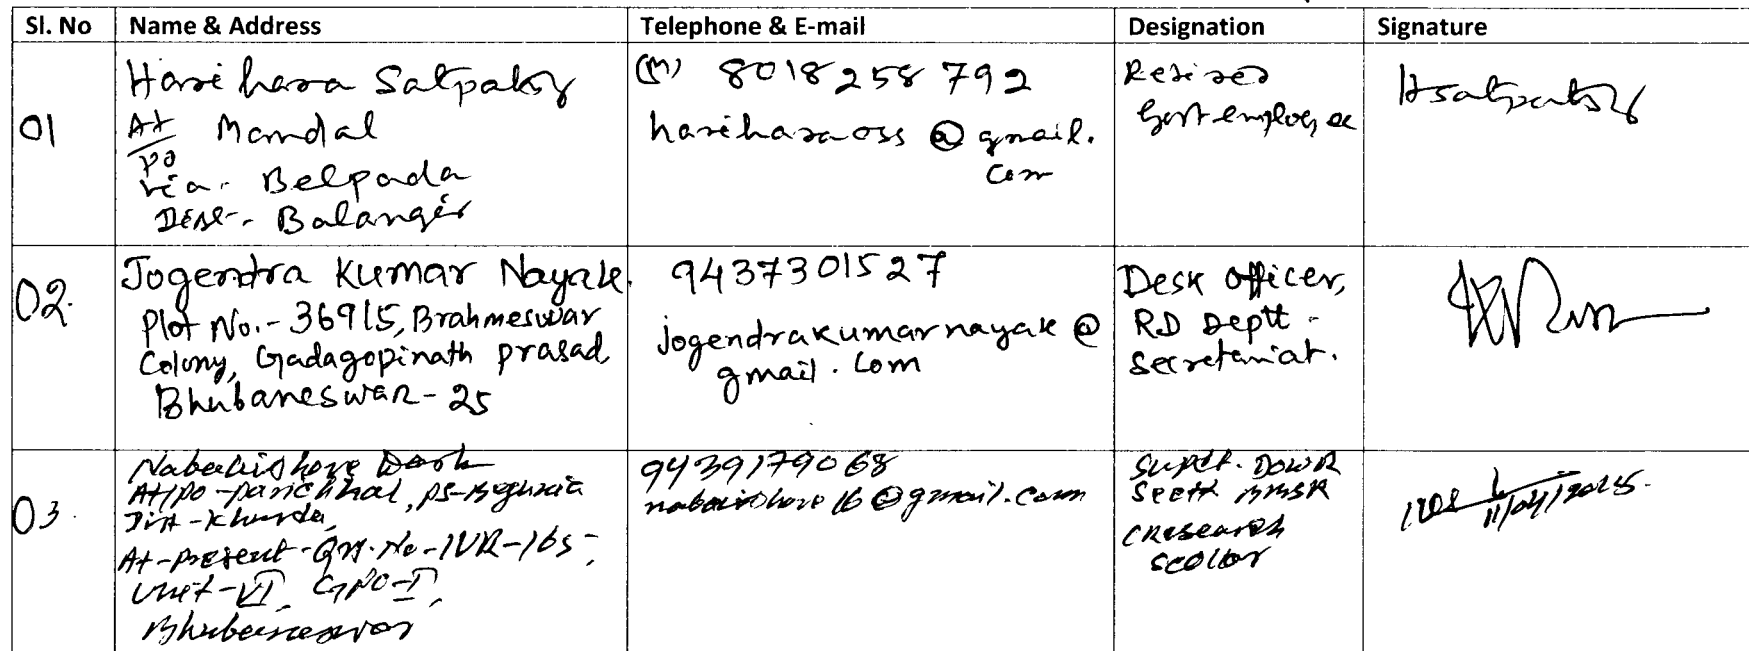 Sl. No Name & Address Telephone & E-mail Designation Signature
01
Harihara Satpathy
At/Po Mandal
via- Belpada
Dist-- Balangir
(M) 8018258792
hariharaoss @ gmail.
com
Retired
Govt employee
HSatpathy
02.
Jogendra Kumar Nayak.
Plot No.- 36915, Brahmeswar
Colony, Gadagopinath prasad,
Bhubaneswar-25
9437301527
jogendrakumarnayak @
gmail.com
Desk officer,
RD Deptt-
Secretariat.
03.
Nabakishore Dash
At/po-parichhal, ps-Begunia
Dist-Khurda,
At-present-Qrs.No-IVR-16s-
Unit-VI, GPO-I,
Bhubaneswar
9439179068
nabakishore16@gmail.com
Supdt. DOWR
Sectt BBSR
(Research
Scollar
11/04/2025.